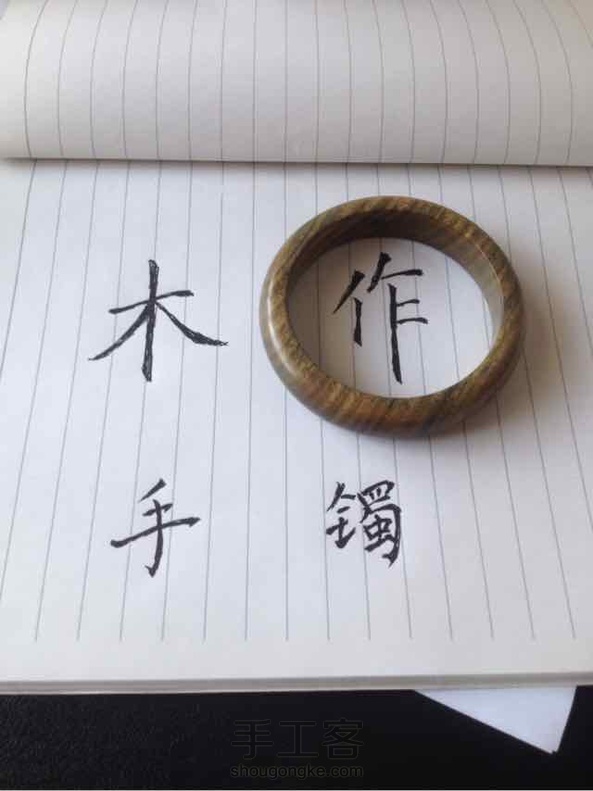 木作
手镯
手工客
shougongke.com